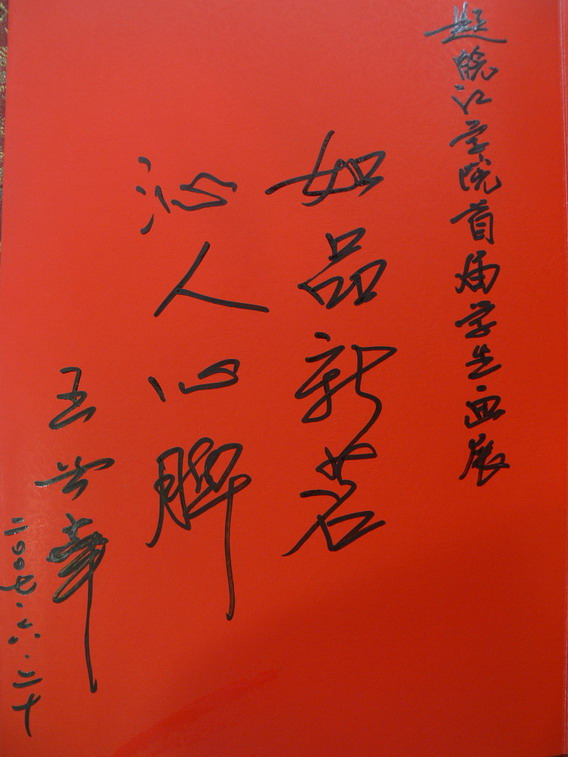 题皖江学院首届学生画展
如品新茗
沁人心脾
王兴华
二〇〇七.六.二十